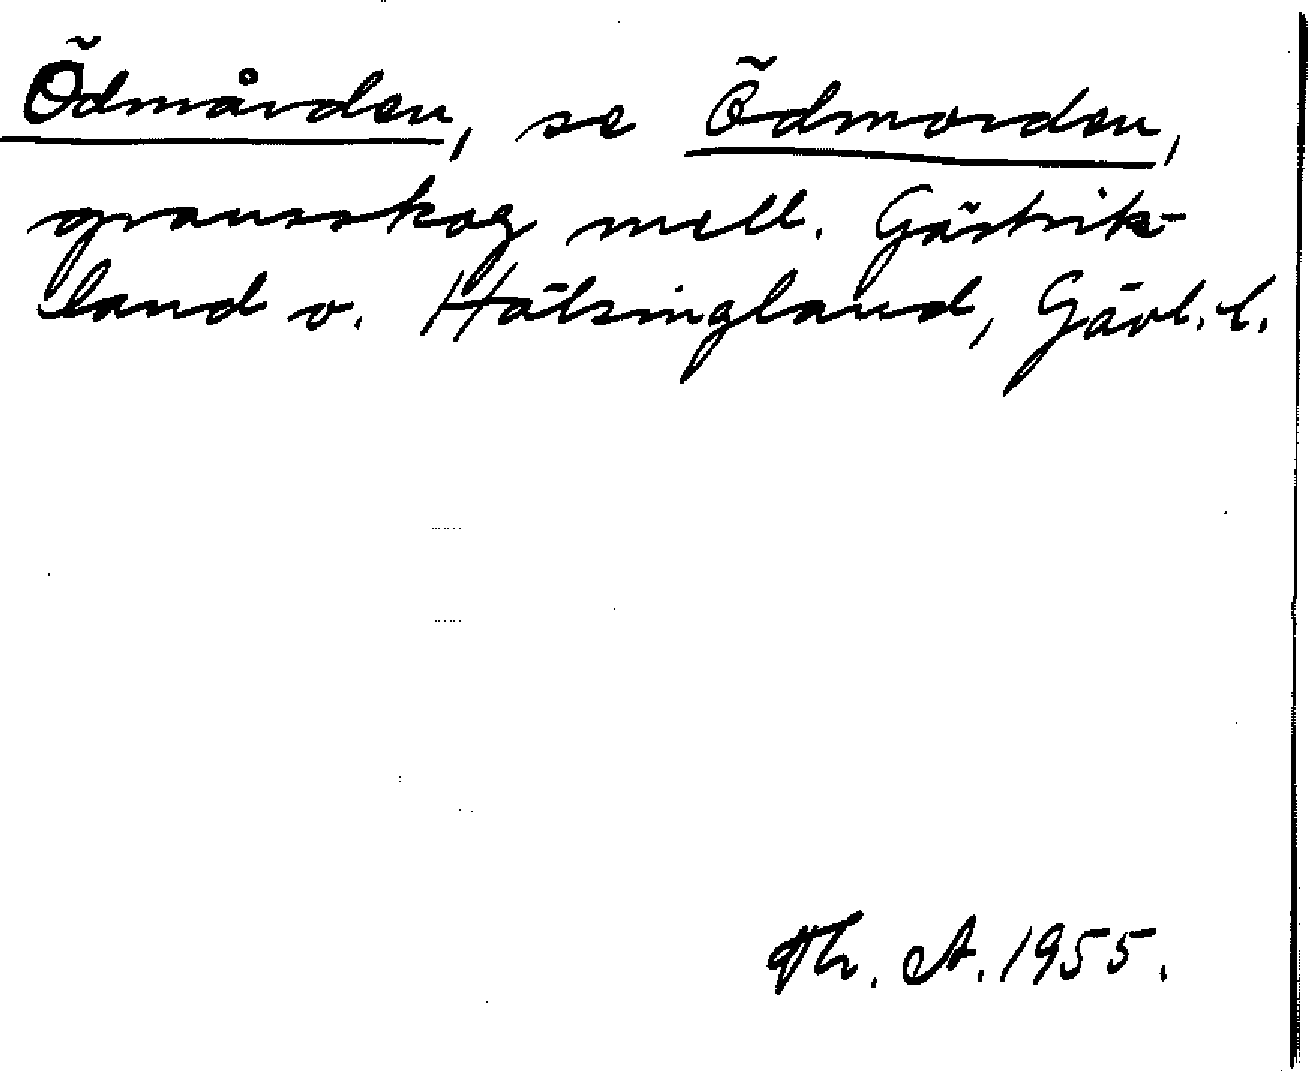 Ödmården, se Ödmorden,
gränsskog mell. Gästrik-
land o. Hälsingland, Gävl. l.
Th. A. 1955.